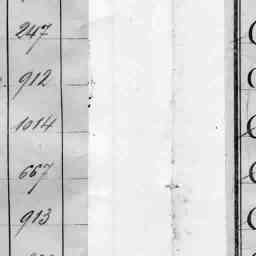 247
912
1014
667
913